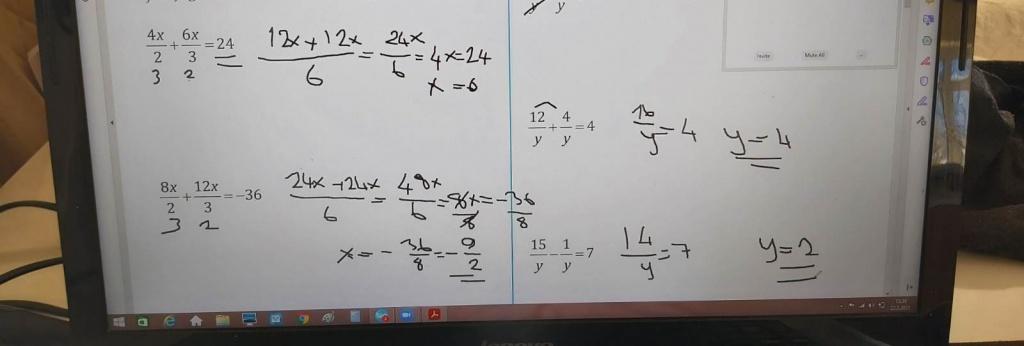 y
4x/2 + 6x/3 = 24 (12x + 12x)/6 = 24x/6 = 4x = 24
3 2
x = 6
Invite Mute All
12/y + 4/y = 4 16/y = 4 y = 4
8x/2 + 12x/3 = -36 (24x + 24x)/6 = 48x/6 = 8x/8 = -36/8
3 2
x = -36/8 = -9/2
15/y - 1/y = 7 14/y = 7 y = 2